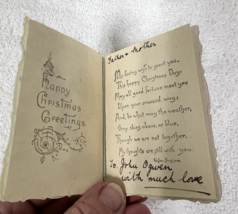 Happy
Christmas
Greetings
Father & Mother
My loving wish to greet you,
This happy Christmas Day;
May all good fortune meet you
Upon your onward way;
And, be what may the weather,
Grey skies above, or blue,
Though we are not together,
My thoughts are still with you.
To. John Ogwen
with much love